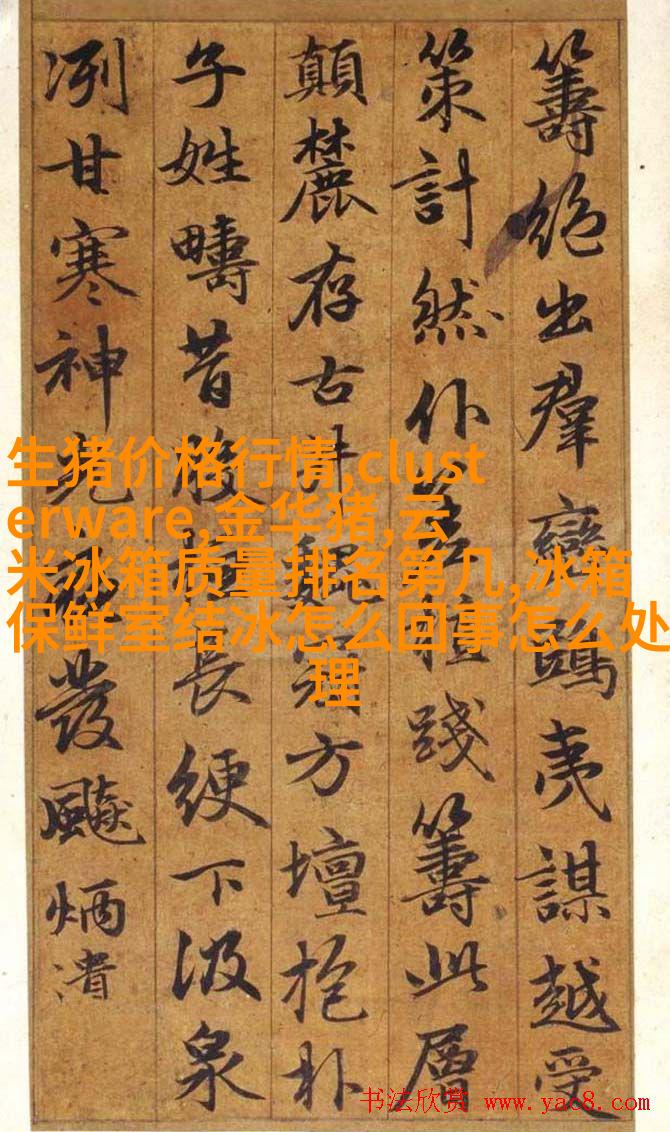 籌絶出羣夷謀越受
策計然仆踐籌此層
顛麓存古井方壇抱朴
子姓疇昔長綆下汲泉
冽甘寒神發飈炳
生猪价格行情,clust
erware,金华猪,云
米冰箱质量排名第几,冰箱
保鲜室结冰怎么回事怎么处
理
书法欣赏 www.yac8.com